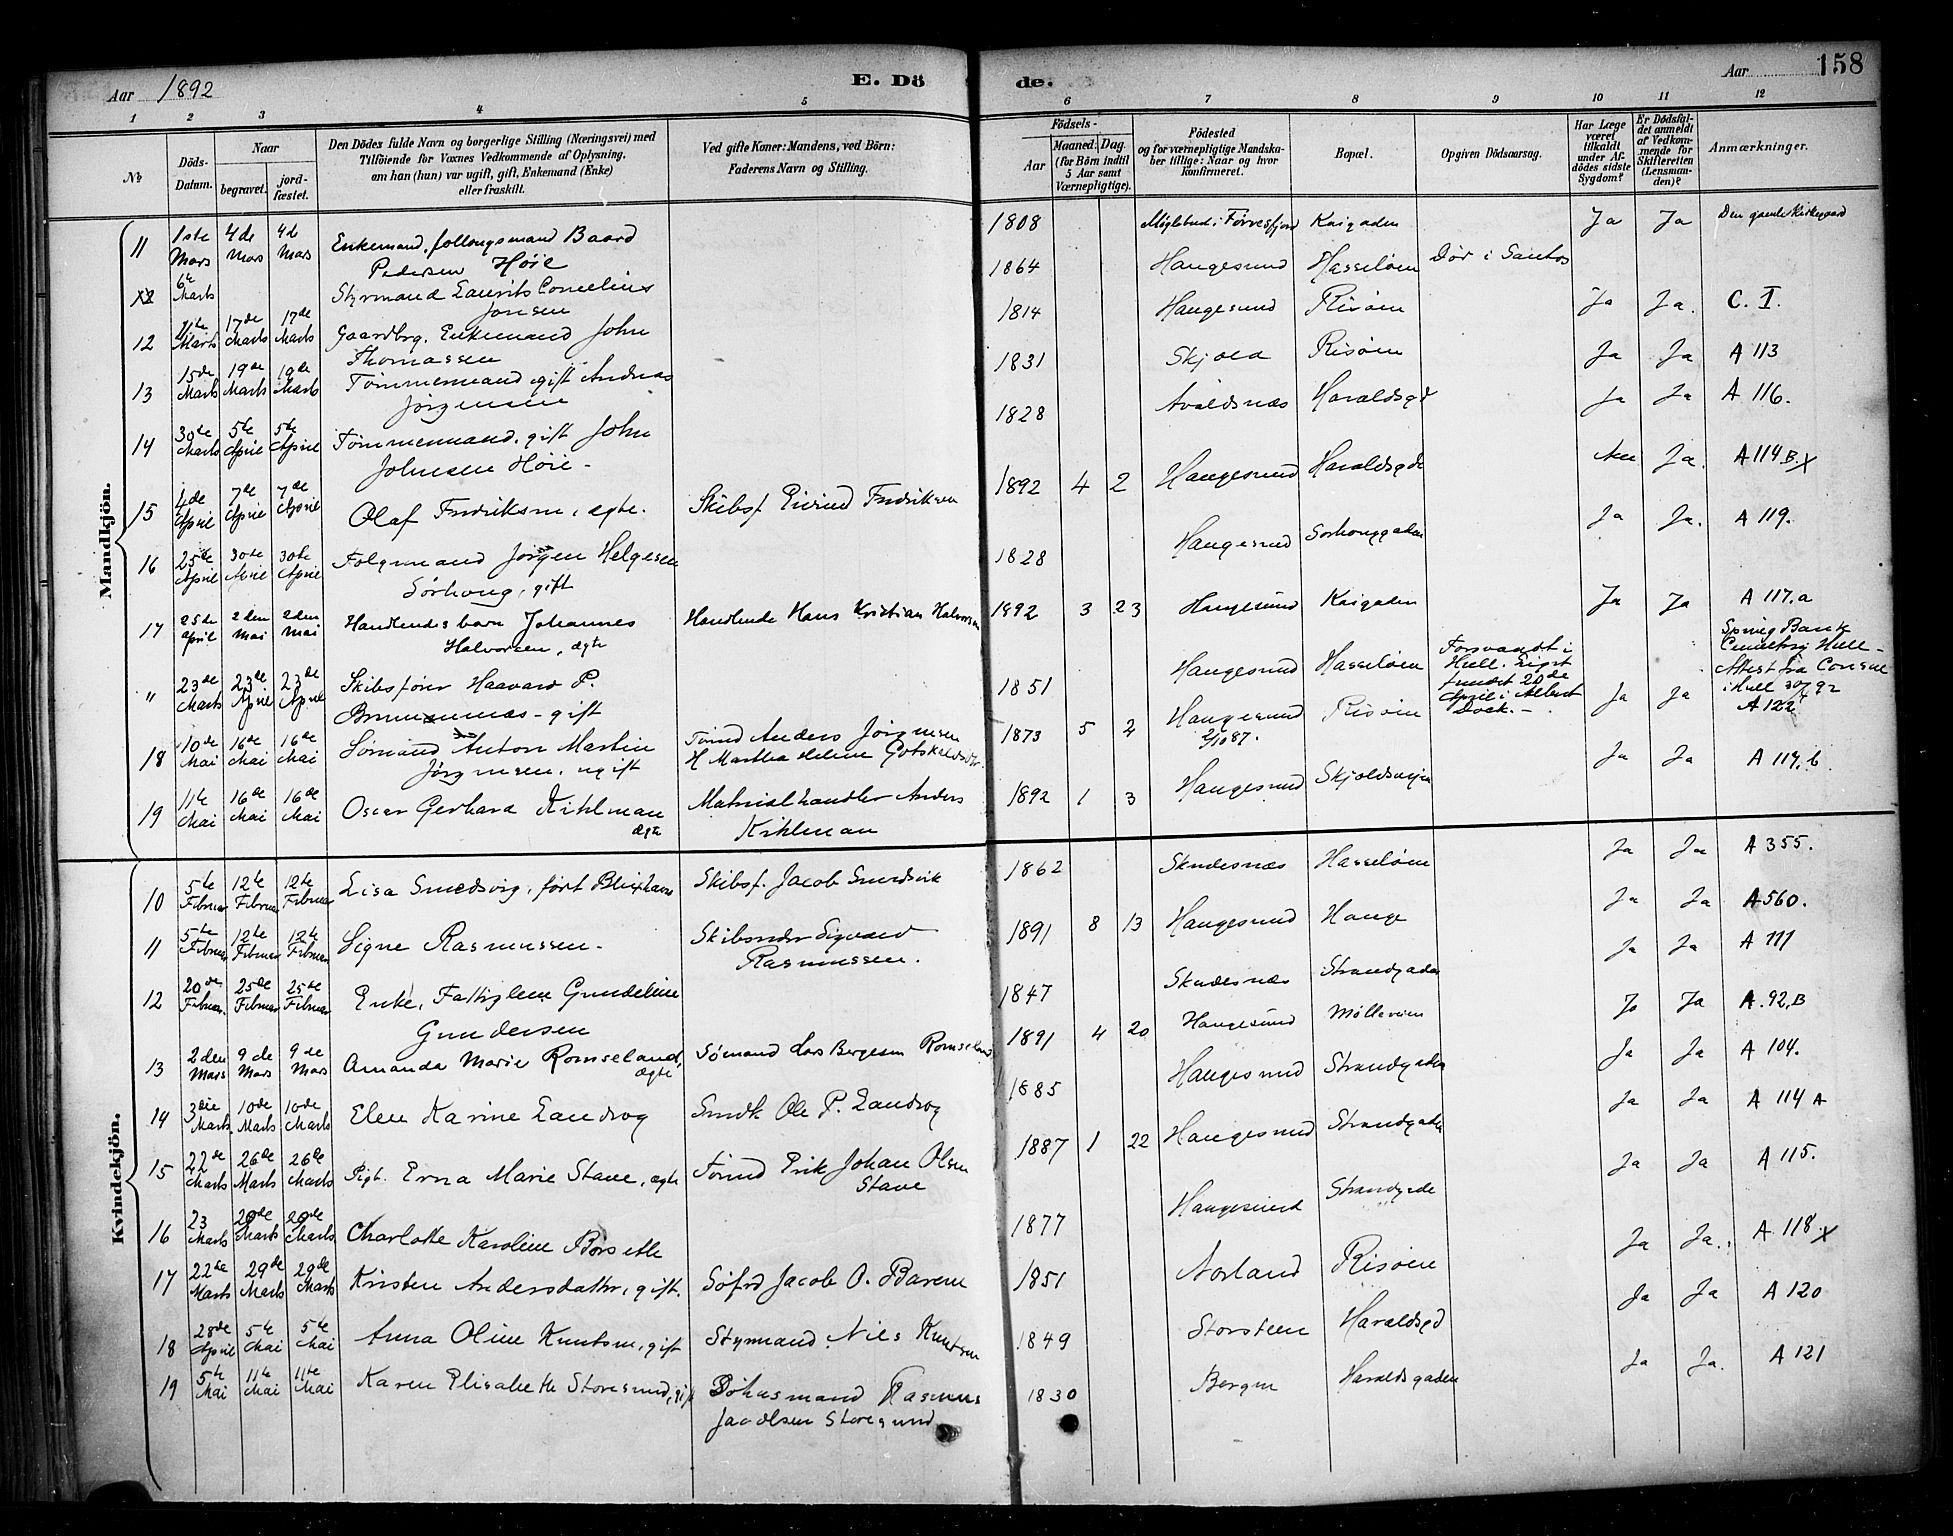 Aar 1892
E. Dö
de.
Aar
158
1 2 3 4 5 6 7 8 9 10 11 12
№
Döds-Datum.
Naar
begravet.
jord-fæstet.
Den Dödes fulde Navn og borgerlige Stilling (Næringsvei) med
Tilföiende for Voxnes Vedkommende af Oplysning,
om han (hun) var ugift, gift, Enkemand (Enke)
eller fraskilt.
Ved gifte Koner: Mandens, ved Börn:
Faderens Navn og Stilling.
Födsels-
Aar
Maaned. Dag.
(for Börn indtil
5 Aar samt
Værnepligtige).
Födested
og for værnepligtige Mandska-
ber tillige: Naar og hvor
konfirmeret.
Bopæl.
Opgiven Dödsaarsag.
Har Læge
været
tilkaldt
under Af-
dödes sidste
Sygdom?
Er Dödsfal-
det anmeldt
af Vedkom-
mende for
Skifteretten
(Lensman-
den)?
Anmærkninger.
Mandkjön.
11 1ste Mars 4de Mars 4de Mars Enkemand, Baard 1808 Kaigaden Ja Ja Den gamle Kirkegaard
Pedersen Høie
6te Marts Styrmand Laurits Cornelius 1864 Haugesund Hasseløen Dør i Santos
Jonsen
12 11te Marts 17de Marts 17de Marts Gaardbrg. Enkemand John 1814 Haugesund Risøen Ja Ja. C. I.
Thomassen
13 15de Marts 19de Marts 19de Marts Tømmermand, gift Andreas 1831 Skjold Risøen Ja Ja A 113
Jørgensen
14 30te Marts 5te April 5te April Tømmermand, gift John 1828 Avaldsnæs Haraldsgd Ja Ja A 116.
Johnsen Høie -
15 4de April 7de April 7de April Olaf Fredriksen, ægte. Skibsf. Eivind Fredriksen 1892 4 2 Haugesund Haraldsgde Nei Ja. A 114 B. X
16 25de April 30te April 30te April Folgemand Jørgen Helgesen 1828 Haugesund Sørhauggaden Ja Ja. A 119.
Sørhaug, gift
17 25de April 2den Mai 2den Mai Handlendes barn Johannes Handlende Hans Kristian Halvorsen 1892 3 23 Haugesund Kaigaden Ja Ja A 117.a
Halvorsen, ægte
" 23de Marts 23de April 23de April Skibsfører Haavard P. 1851 Haugesund Hasseløen Forsvandt i
Hull. Liget
fundet 20de
April i Albert
Dock. - Ja Ja Spring Bank
Cemetery Hull -
Attest fra Consul
i Hull 30/4 92
A 122
- gift
18 10de Mai 16de Mai 16de Mai Sømand Anton Martin Tømd Anders Jørgensen 1873 5 2 Haugesund Risøen
Jørgensen, ugift H Martha Helene Gotskalksdtr. 2/10 87.
19 11te Mai 16de Mai 16de Mai Oscar Gerhard Kihlman Materialhandler Anders 1892 1 3 Haugesund Skjoldsveien Ja Ja A 117.b
ægte Kihlman
Kvindekjön.
10 5te Februar 12te Februar 12te Februar Lisa Smedsvig, født Skibsf. Jacob Smedsvik 1862 Skudesnæs Hasseløen Ja Ja A 355.
11 5te Februar 12te Februar 12te Februar Signe Rasmussen - Sigvard 1891 8 13 Haugesund Hauge Ja Ja A 560.
Rasmussen.
12 20de Februar 25de Februar 25de Februar Enke, Fattiglem Gundeline 1847 Skudesnæs Strandgaden Ja Ja A 111
Gundersen
13 2den Mars 9de Mars 9de Mars Amanda Marie Romseland, ægte Sømand Lars Bergesen Romseland 1891 4 20 Haugesund Mølleveien Ja Ja A. 92.B
14 3die Marts. 10de Marts 10de Marts Elen Karine Landrog Smedk Ole P. Landrog 1885 Haugesund Strandgaden Ja Ja A 104.
15 22de Marts 26de Marts 26de Marts Pigb. Erna Marie Stave, ægte Tømd Erik Johan Olsen 1887 1 22 Haugesund Strandgaden Ja Ja A 114 A
Stave
16 23 Marts 29de Marts 29de Marts Charlotte Karoline Børseth 1877 Haugesund Strandgade Ja Ja A 115.
17 22de Marts 29de Marts 29de Marts Kristen Andersdatter, gift. Jacob O. Barene 1851 Norland Risøen Ja Ja. A 118. X
18 28de April 5te Mai 5te Mai Anna Oline Knutsen, gift Styrmand Nils Knutsen 1849 Storsteen Haraldsgd Ja Ja A 120
19 5te Mai 11te Mai 11te Mai Karen Elisabeth Storesund, gift Rasmus 1830 Bergen Haraldsgaden Ja Ja. A 121
Jacobsen Storesund